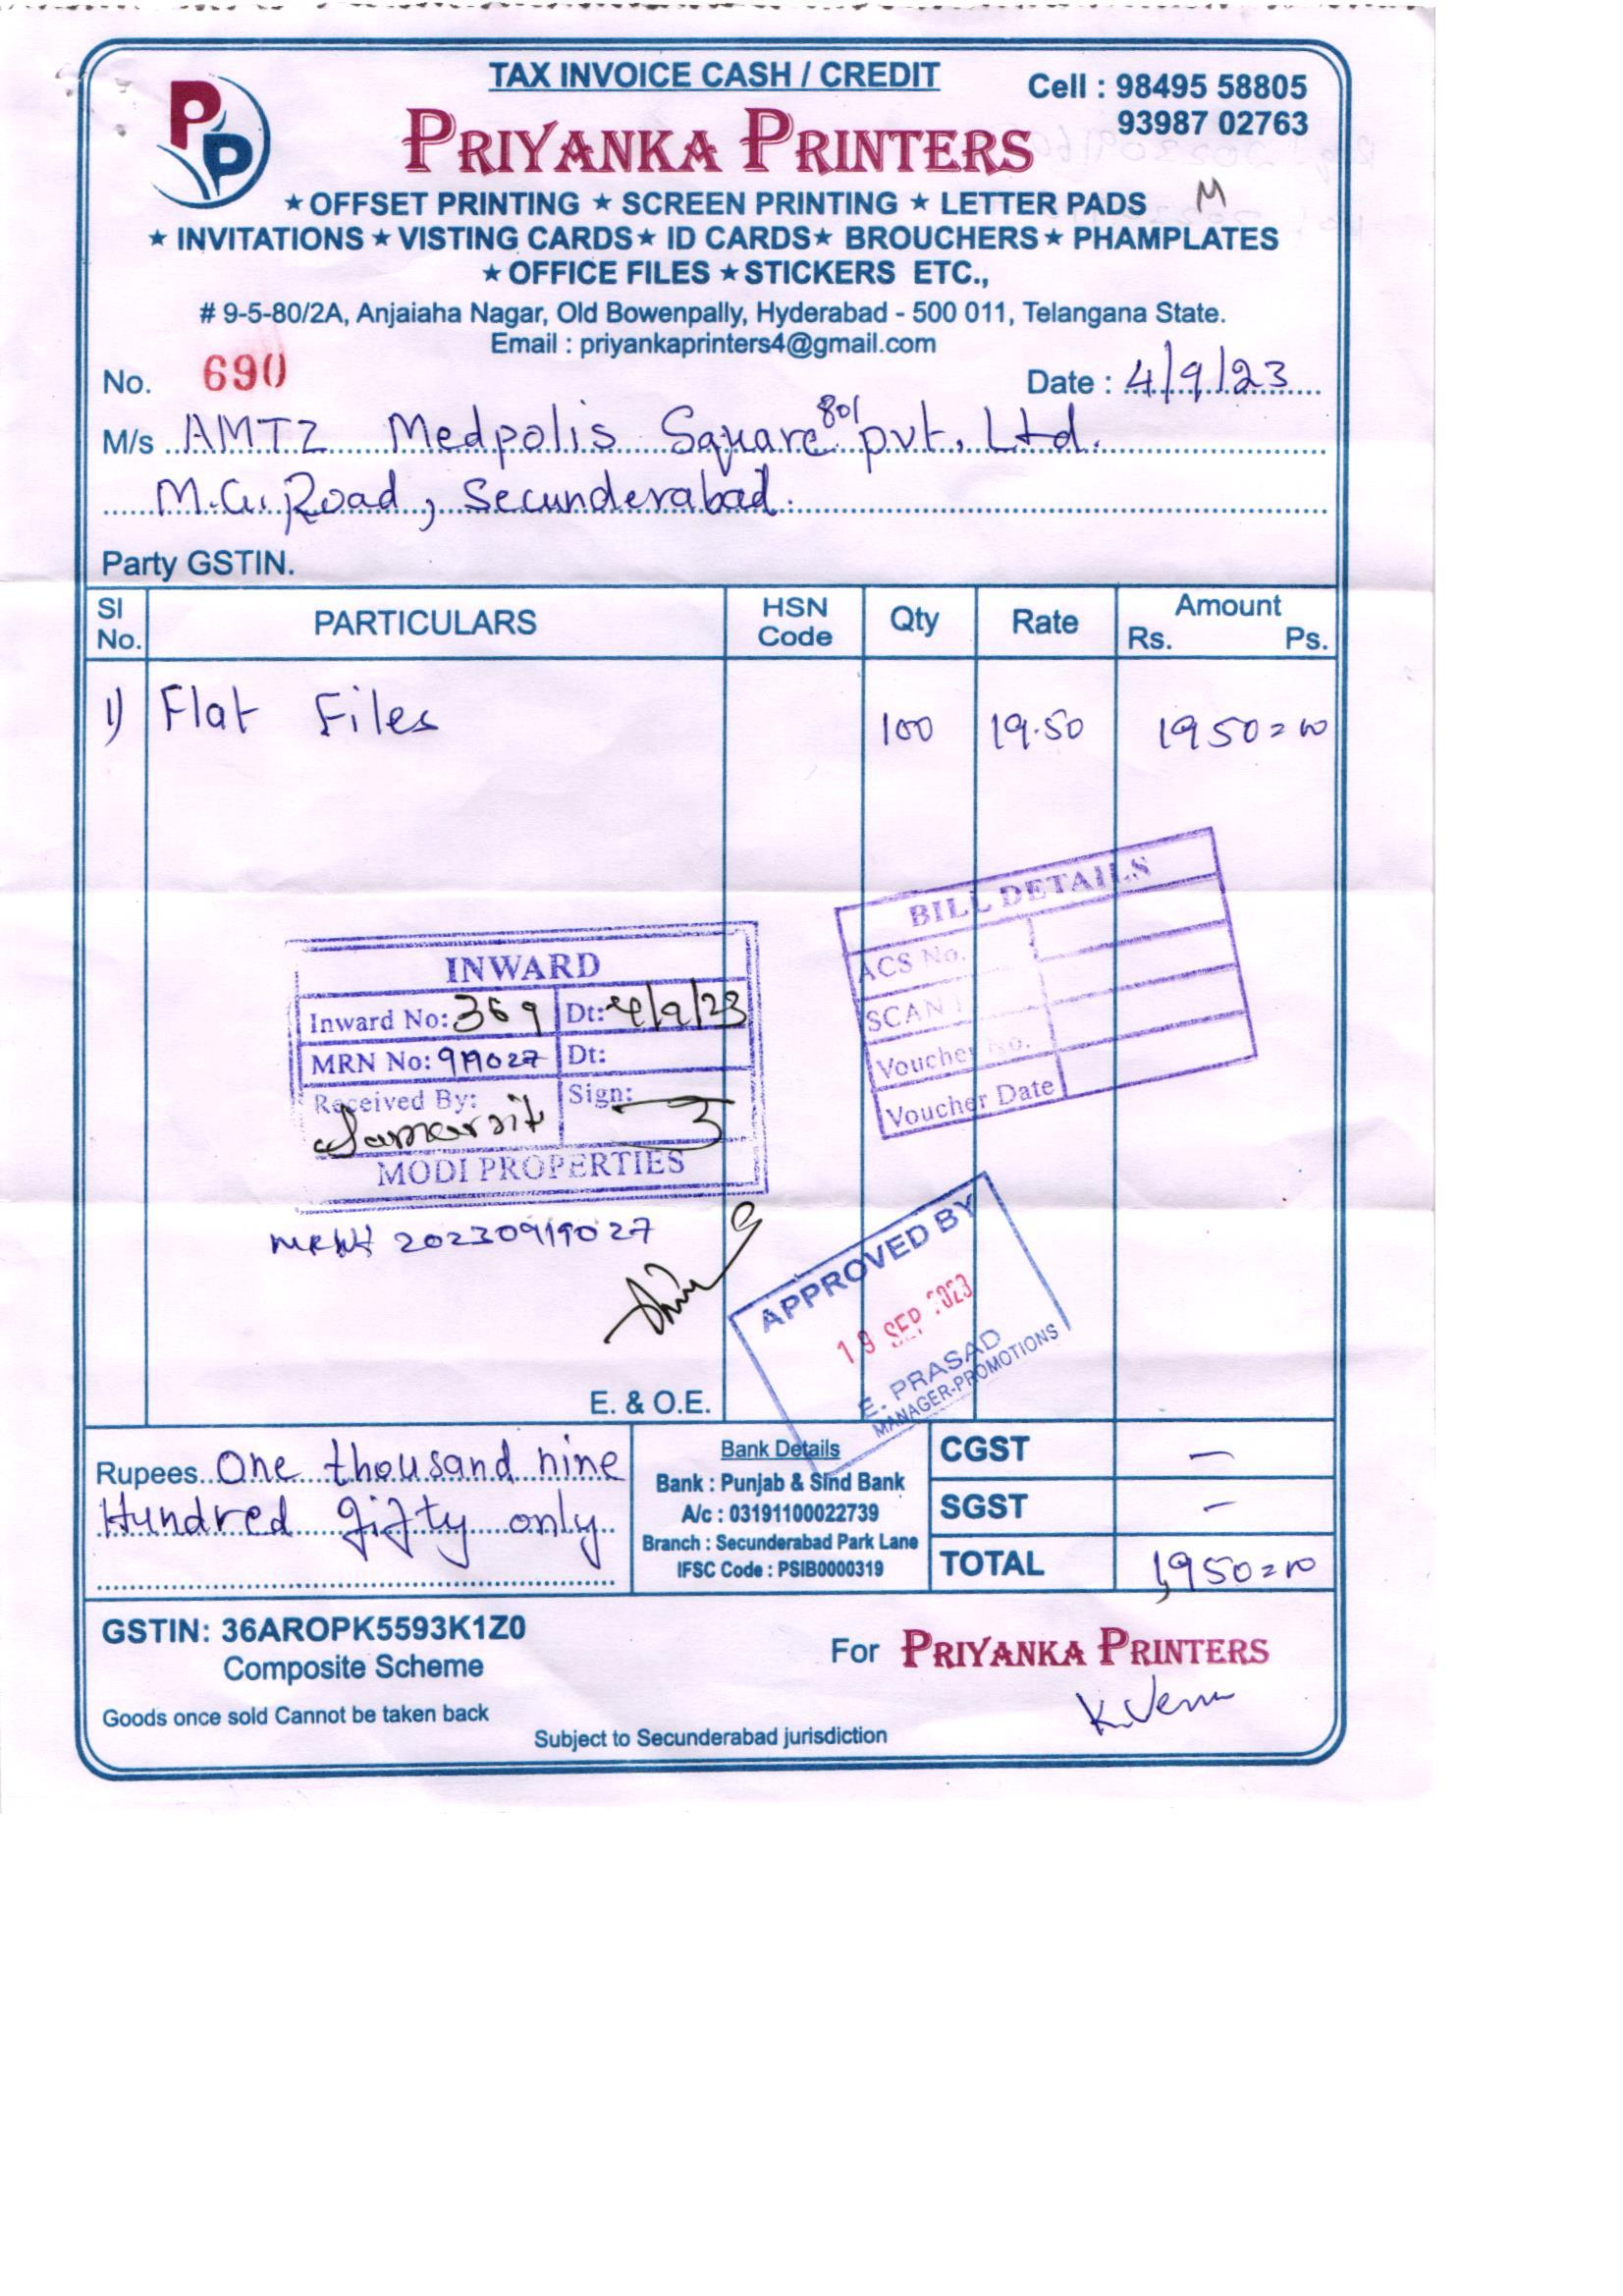 TAX INVOICE CASH / CREDIT
Cell : 98495 58805
93987 02763
PP
PRIYANKA PRINTERS
★ OFFSET PRINTING ★ SCREEN PRINTING ★ LETTER PADS
M
★ INVITATIONS ★ VISTING CARDS ★ ID CARDS ★ BROUCHERS ★ PHAMPLATES
★ OFFICE FILES ★ STICKERS ETC.,
# 9-5-80/2A, Anjaiaha Nagar, Old Bowenpally, Hyderabad - 500 011, Telangana State.
Email : priyankaprinters4@gmail.com
No. 690 Date : 4/9/23
M/s AMTZ Medpolis Square 801 pvt. Ltd.
M.G. Road, Secunderabad.
Party GSTIN.
Sl No. PARTICULARS HSN Code Qty Rate Amount Rs. Ps.
1) Flat Files 100 19.50 1950=00
BILL DETAILS
ACS No.
SCAN
Voucher No.
Voucher Date
INWARD
Inward No: 369 Dt: 4/9/23
MRN No: 919027 Dt:
Received By: Sign:
MODI PROPERTIES
20230919027
APPROVED BY
19 SEP 2023
E. PRASAD
MANAGER-PROMOTIONS
E. & O.E.
Rupees One thousand nine
Hundred fifty only
Bank Details
Bank : Punjab & Sind Bank
A/c : 03191100022739
Branch : Secunderabad Park Lane
IFSC Code : PSIB0000319
CGST —
SGST —
TOTAL 1,950=00
GSTIN: 36AROPK5593K1Z0
Composite Scheme
For PRIYANKA PRINTERS
K.Venu
Goods once sold Cannot be taken back
Subject to Secunderabad jurisdiction